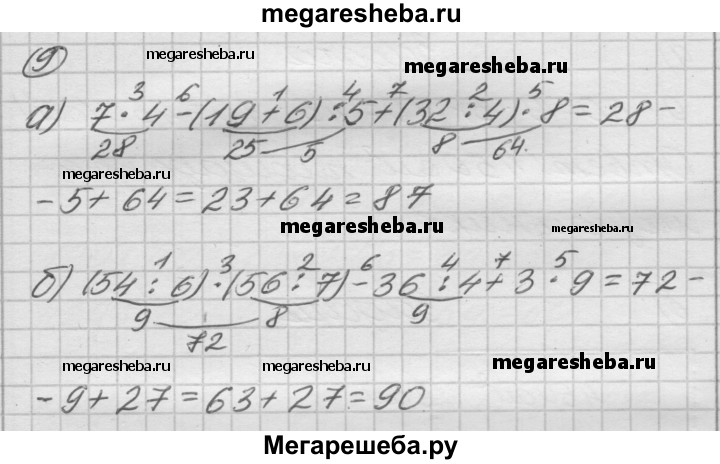 megaresheba.ru
9 megaresheba.ru megaresheba.ru
3 6 1 4 7 2 5
а) 7 · 4 - (19 + 6) : 5 + (32 : 4) · 8 = 28 -
28 25 5 8 64
megaresheba.ru
- 5 + 64 = 23 + 64 = 87
megaresheba.ru megaresheba.ru
1 3 2 6 4 7 5
б) (54 : 6) · (56 : 7) - 36 : 4 + 3 · 9 = 72 -
9 8 9
72
megaresheba.ru megaresheba.ru megaresheba.ru
- 9 + 27 = 63 + 27 = 90
megaresheba.ru
Мегарешеба.ру